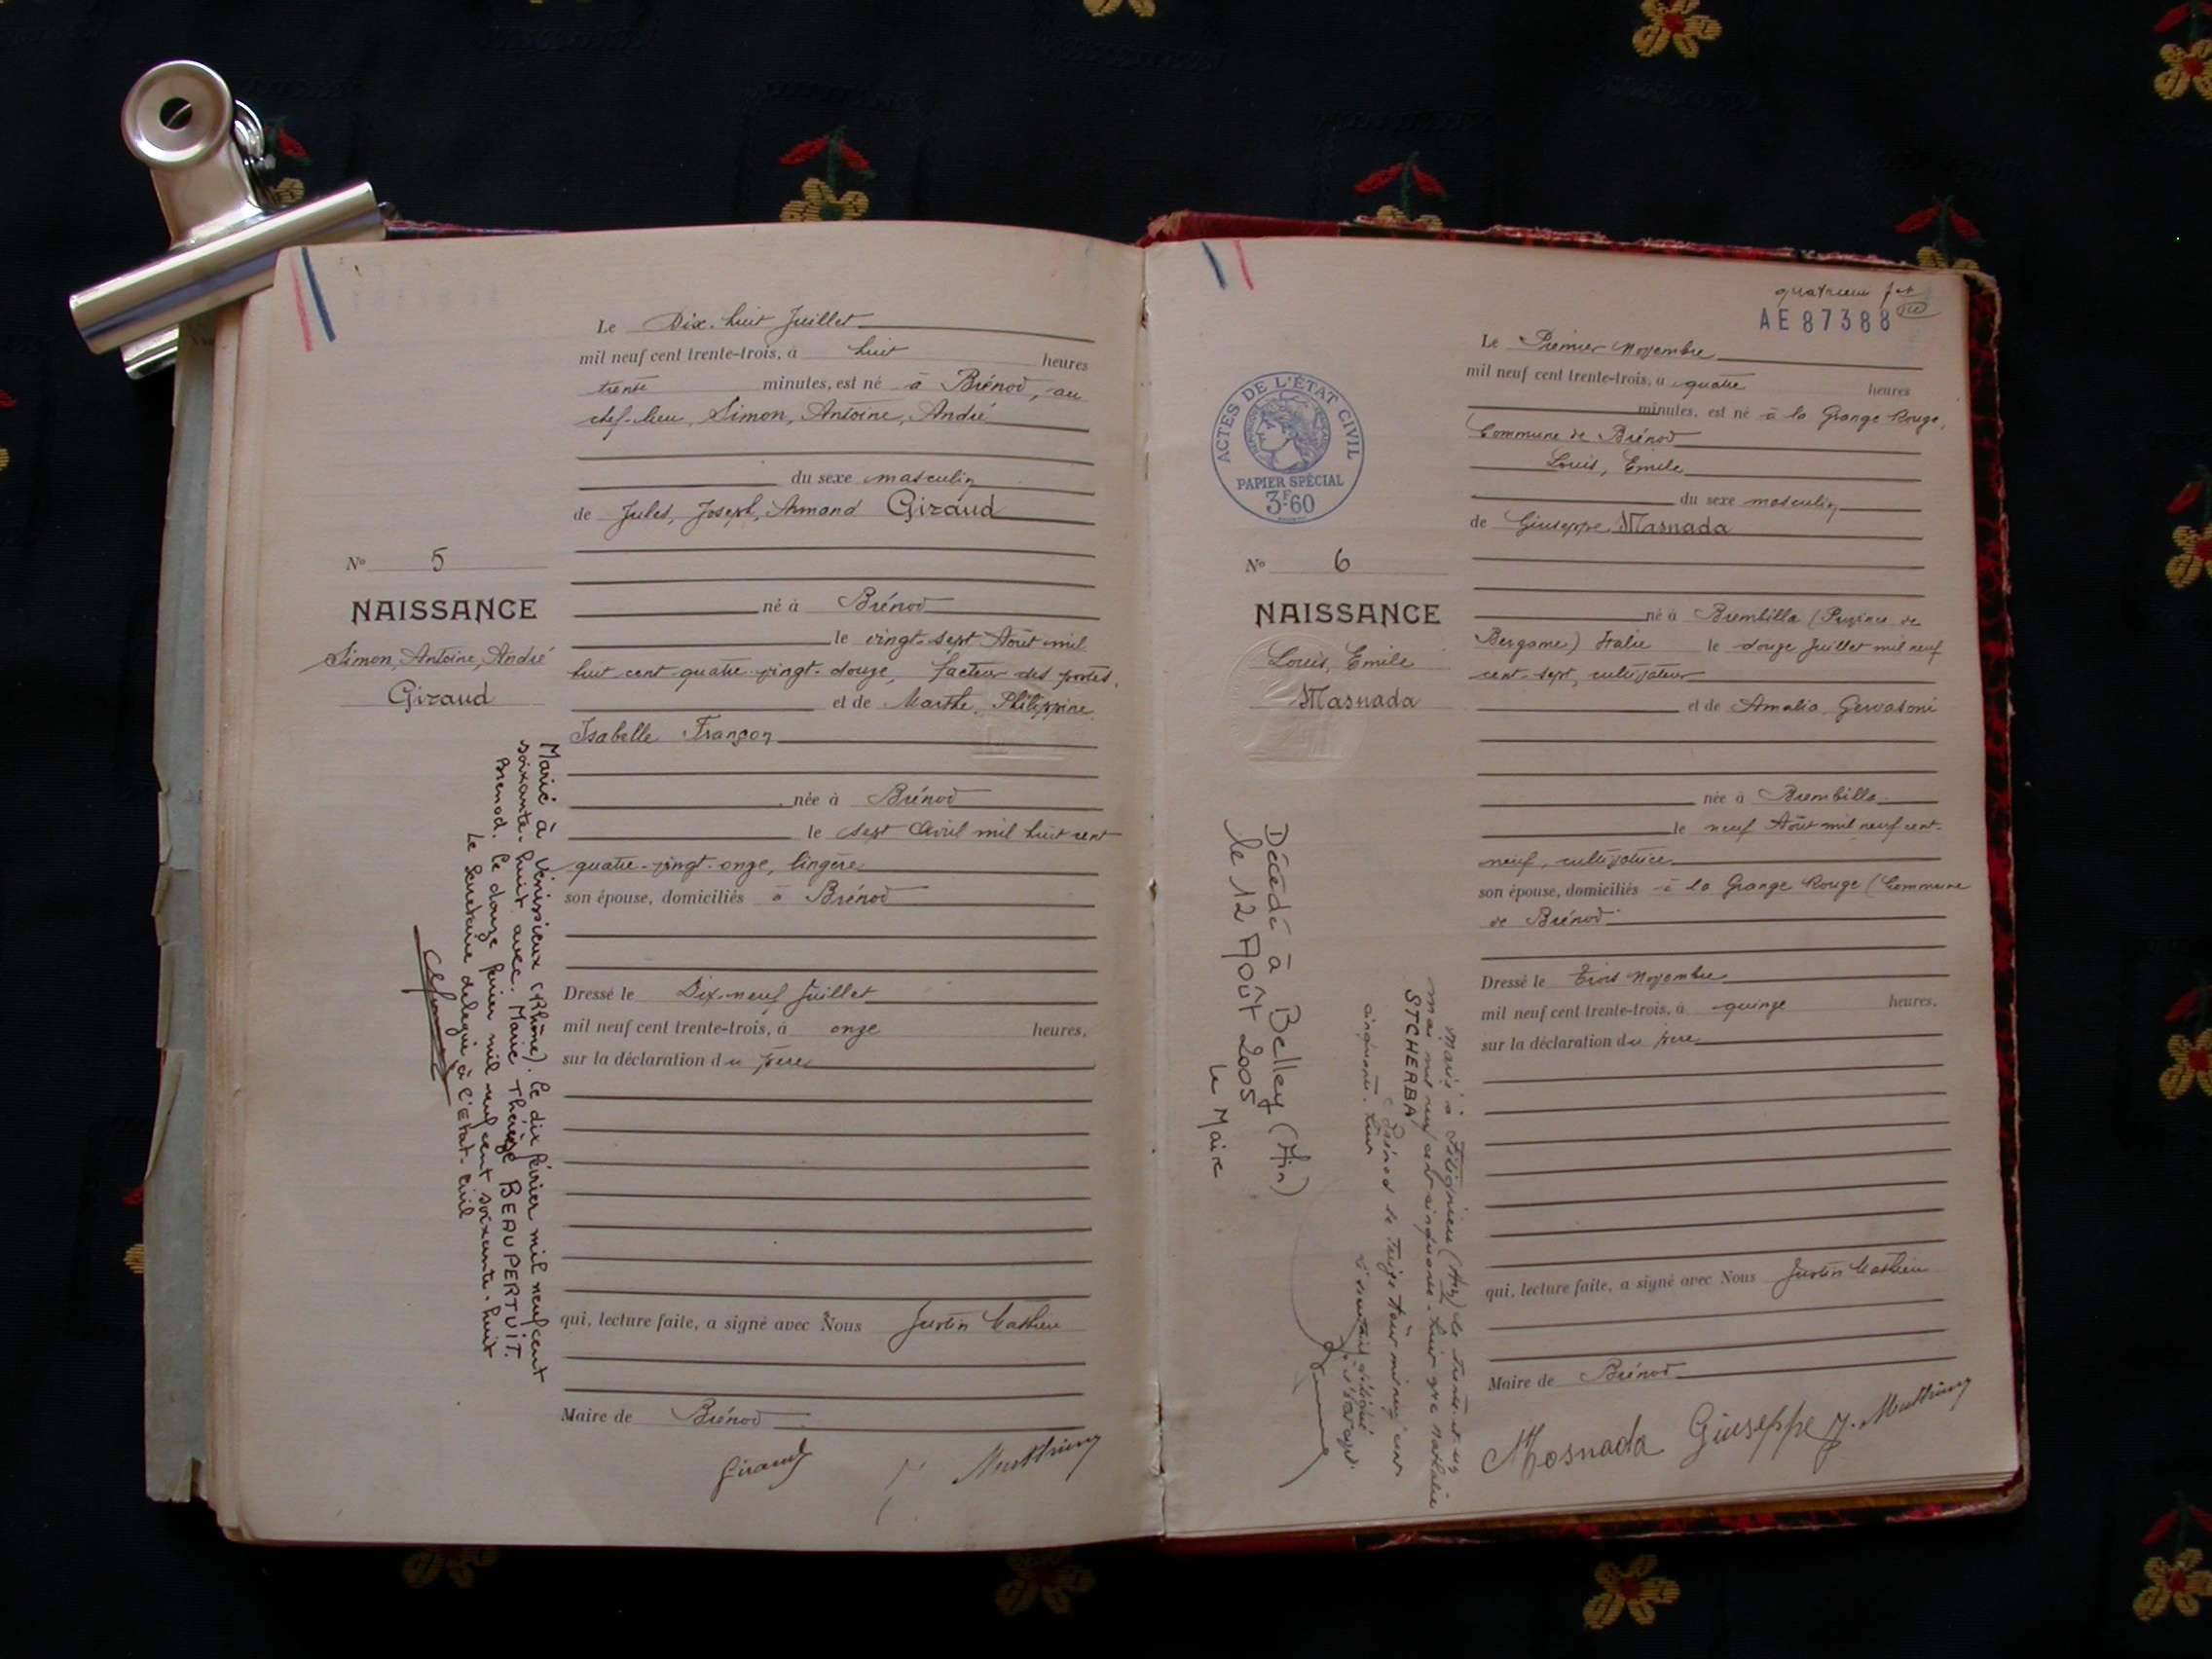 Le Dix-huit Juillet
mil neuf cent trente-trois, à huit heures
trente minutes, est né à Brénod, au
chef-lieu, Simon, Antoine, André
du sexe masculin
de Jules, Joseph, Armand Giraud
né à Brénod
le vingt-sept Août mil
huit cent quatre-vingt-douze, facteur des postes,
et de Marthe, Philippine
Isabelle Françon
née à Brénod
le sept Avril mil huit cent
quatre-vingt-onze, lingère
son épouse, domiciliés à Brénod
Dressé le Dix-neuf Juillet
mil neuf cent trente-trois, à onze heures,
sur la déclaration du père
qui, lecture faite, a signé avec Nous Justin Mathieu
Maire de Brénod
Giraud
No 5
NAISSANCE
Simon, Antoine, André
Giraud
Marié à Vénissieux (Rhône). le dix février mil neuf cent
soixante-huit avec: Marie Thérèse BEAUPERTUIT.
Brenod. le douze février mil neuf cent soixante-huit
Le Secrétaire délégué à l'Etat-civil
quatrieme
AE 87388
Le Premier Novembre
mil neuf cent trente-trois, à quatre heures
minutes, est né à la Grange Rouge,
Commune de Brénod
Louis, Emile
du sexe masculin
de Giuseppe Masnada
né à Brembilla (Province de
Bergame) Italie le douze Juillet mil neuf
cent-sept, cultivateur
et de Amalia Gervasoni
née à Brembilla
le neuf Août mil neuf cent-
neuf, cultivatrice
son épouse, domiciliés à la Grange Rouge (Commune
de Brénod
Dressé le trois Novembre
mil neuf cent trente-trois, à quinze heures,
sur la déclaration du père
qui, lecture faite, a signé avec Nous Justin Mathieu
Maire de Brénod
Masnada Giuseppe J. Mathieu
ACTES DE L'ÉTAT CIVIL
PAPIER SPÉCIAL
3F.60
No 6
NAISSANCE
Louis, Emile
Masnada
Marié à (Ain) le trente et un
mai mil neuf cent cinquante-huit avec Nathalie
STCHERBA
Brénod le treize mil neuf cent
cinquante-huit
Décédé à Belley (Ain)
le 12 Août 2005
Le Maire